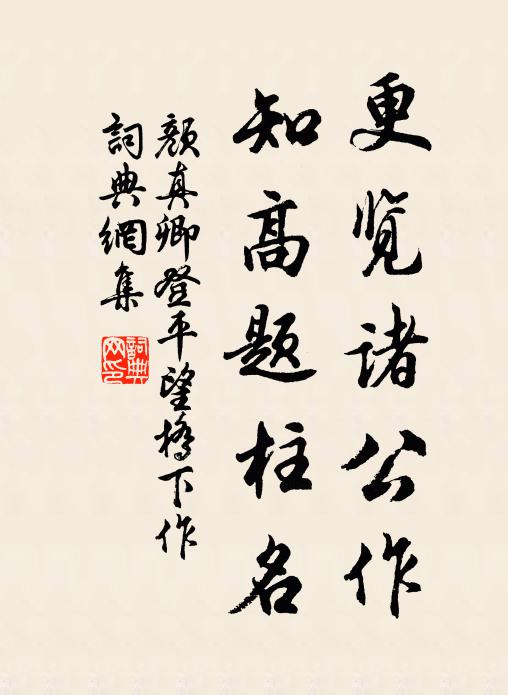 更览諸公作
知高題柱名
顔真卿登平望橋下作
詞典網集
詞典网印